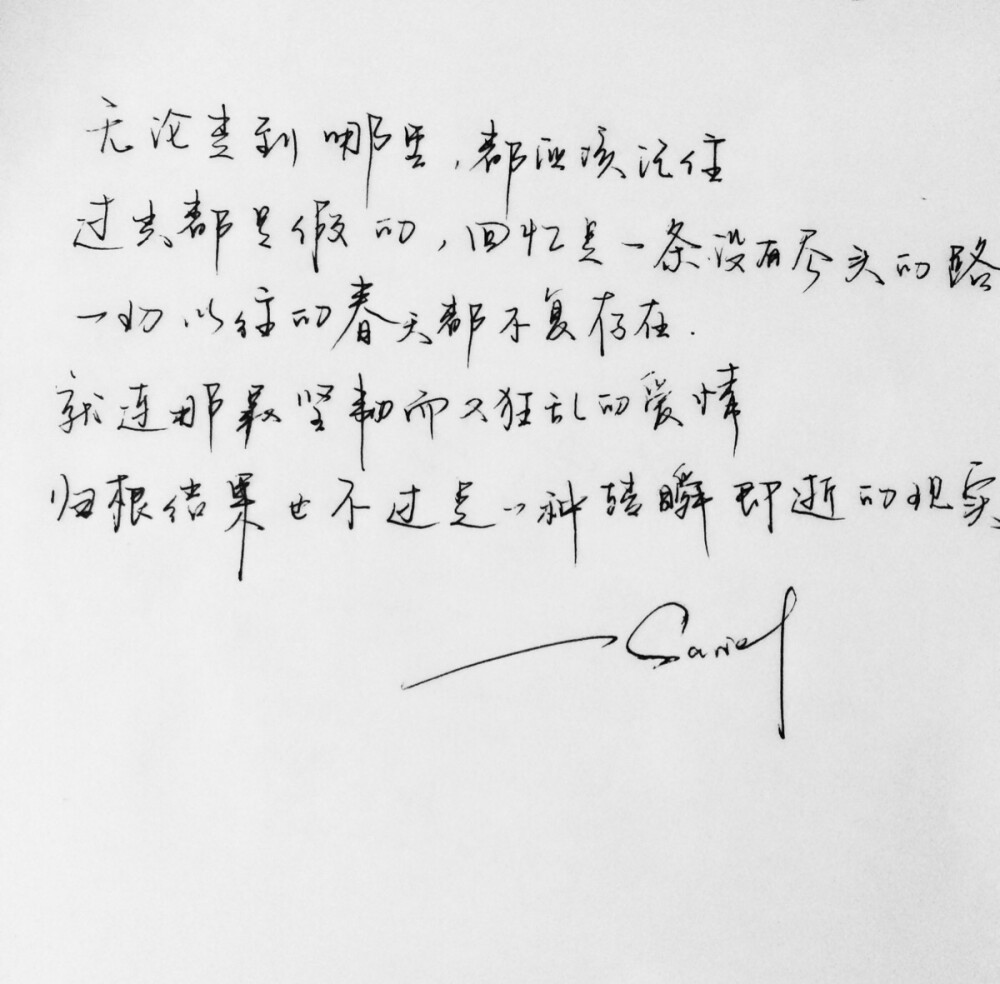 无论走到哪里,都应该记住
过去都是假的,回忆是一条没有尽头的路
一切以往的春天都不复存在.
就连那最坚韧而又狂乱的爱情
归根结果也不过是一种转瞬即逝的现实